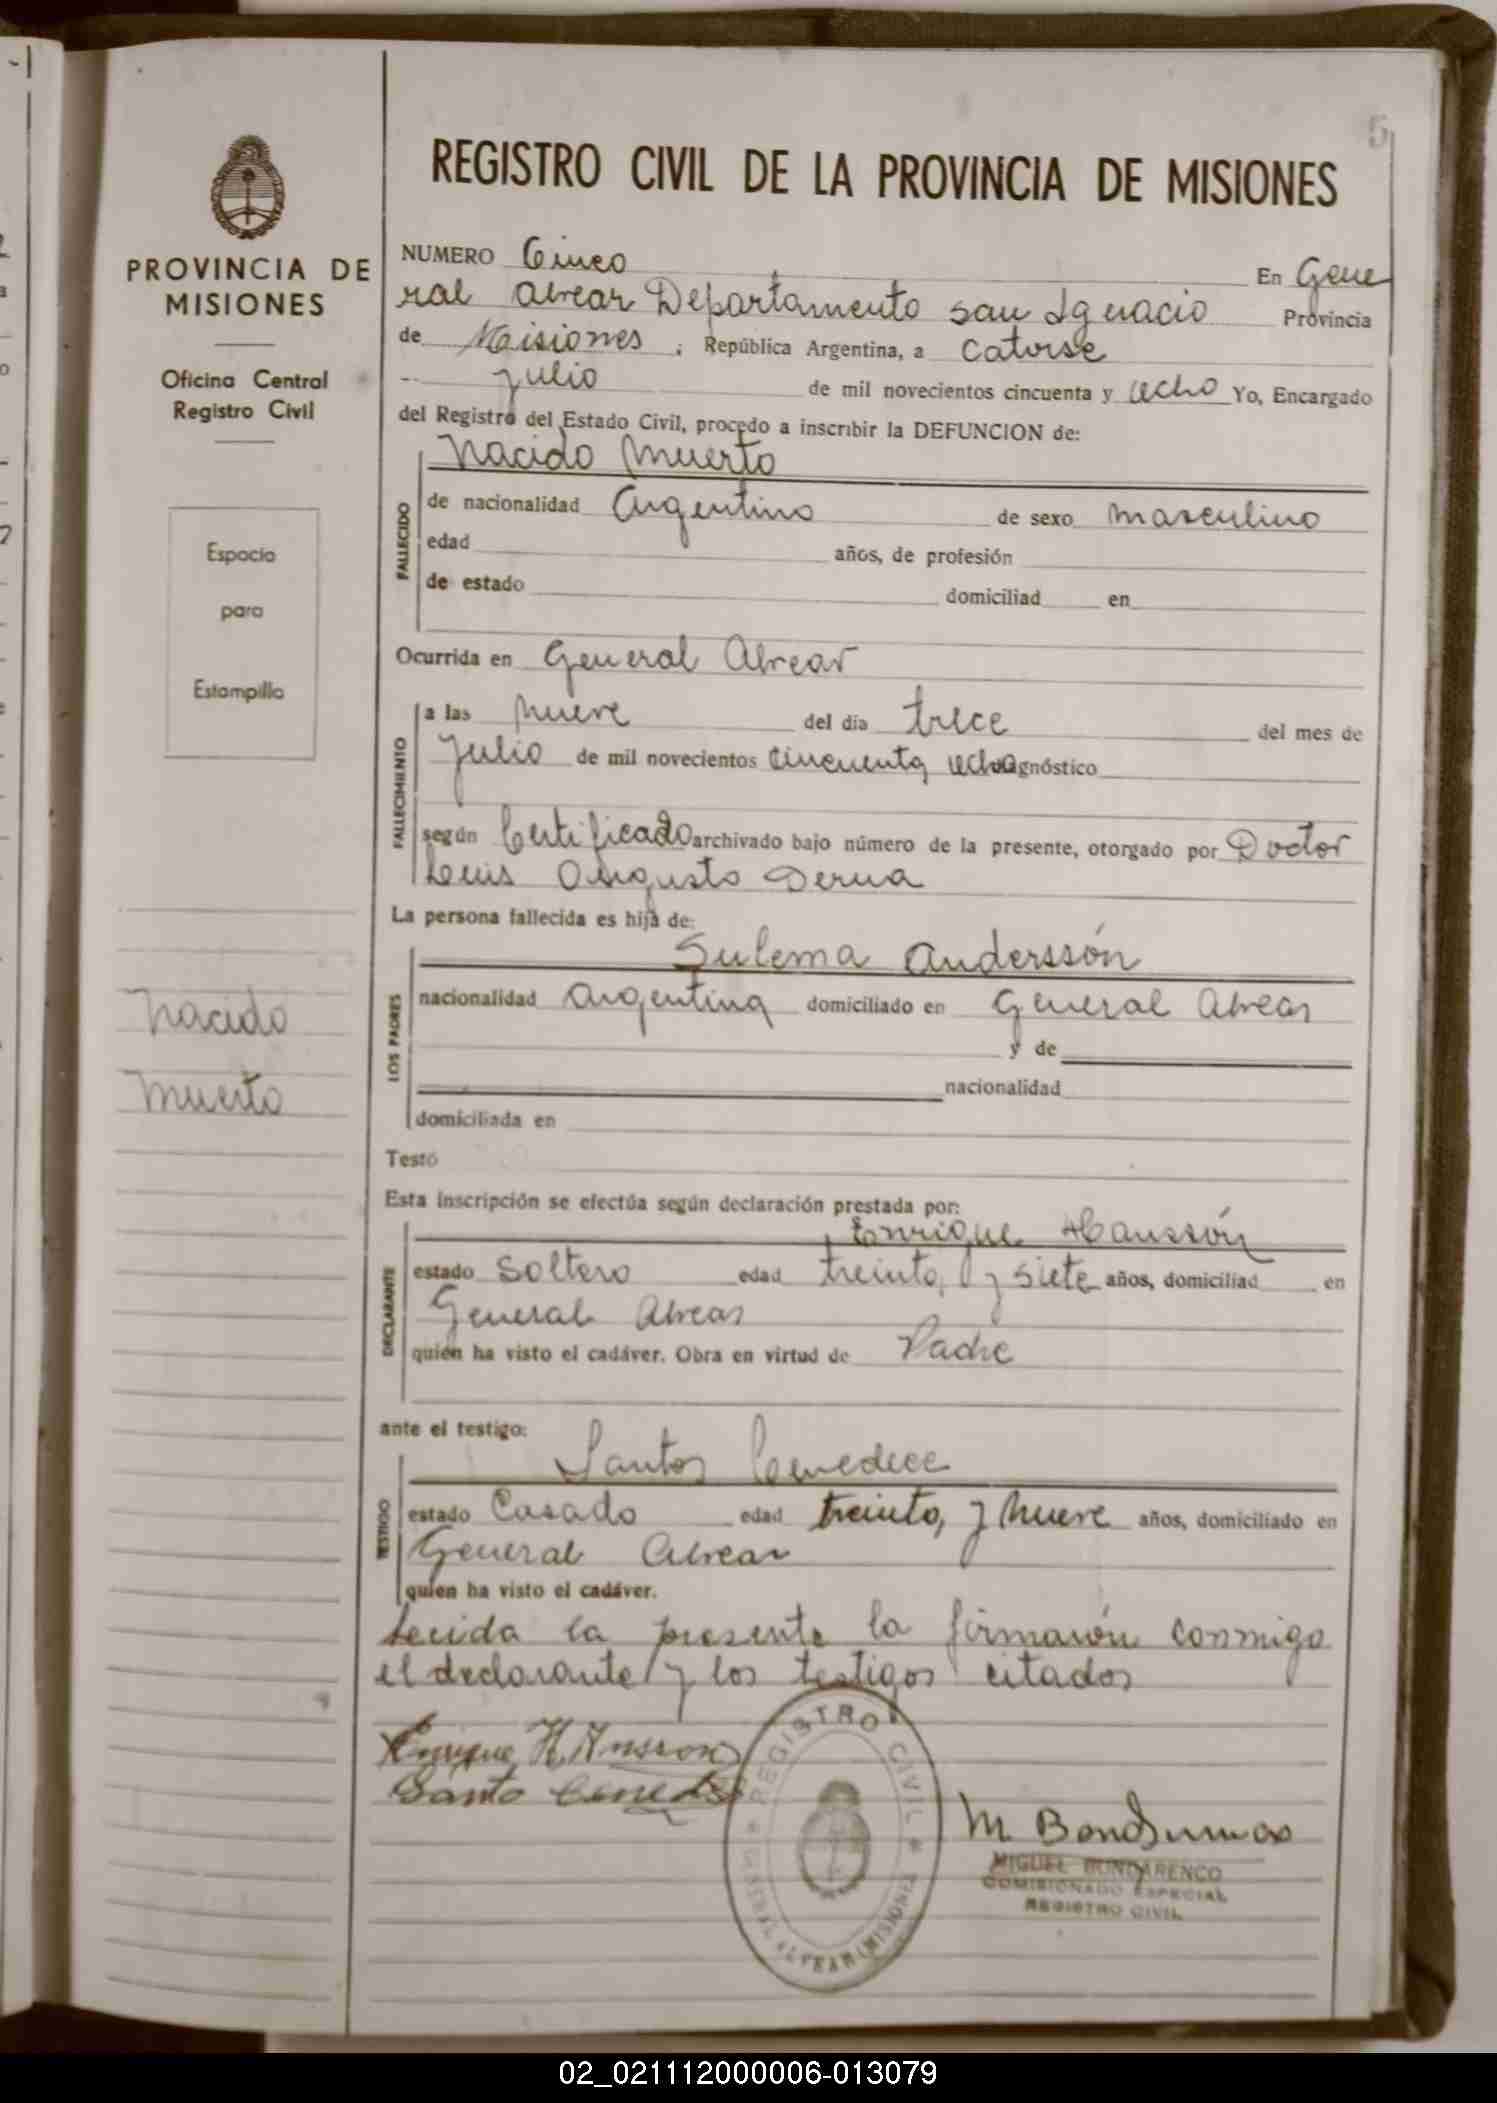 5
REGISTRO CIVIL DE LA PROVINCIA DE MISIONES
PROVINCIA DE
MISIONES
Oficina Central
Registro Civil
Espacio
para
Estampilla
Nacido
Muerto
NUMERO Cinco En Gene
ral Alvear Departamento san Ignacio Provincia
de Misiones ; República Argentina, a Catorse
Julio de mil novecientos cincuenta y ocho Yo, Encargado
del Registro del Estado Civil, procedo a inscribir la DEFUNCION de:
Nacido Muerto
FALLECIDO
de nacionalidad Argentino de sexo masculino
edad años, de profesión
de estado domiciliad en
Ocurrida en General Alvear
FALLECIMIENTO
a las nueve del día trece del mes de
Julio de mil novecientos cincuenta ocho agnóstico
según Certificado archivado bajo número de la presente, otorgado por Doctor
Luis Augusto Derna
La persona fallecida es hija de:
Sulema Anderssón
LOS PADRES
nacionalidad Argentina domiciliado en General Alvear
y de
nacionalidad
domiciliada en
Testó
Esta inscripción se efectúa según declaración prestada por:
Enrique Haussón
DECLARANTE
estado Soltero edad treinta, y siete años, domiciliad en
General Alvear
quién ha visto el cadáver. Obra en virtud de Padre
ante el testigo:
Santos
TESTIGO
estado Casado edad treinta, y nueve años, domiciliado en
General Alvear
quien ha visto el cadáver.
Leuida la presente la firmarón conmigo
el declarante y los testigos citados
Enrique H
Santo
REGISTRO CIVIL
GENERAL ALVEAR (MISIONES)
M
MIGUEL BONDARENCO
COMISIONADO ESPECIAL
REGISTRO CIVIL
02_021112000006-013079